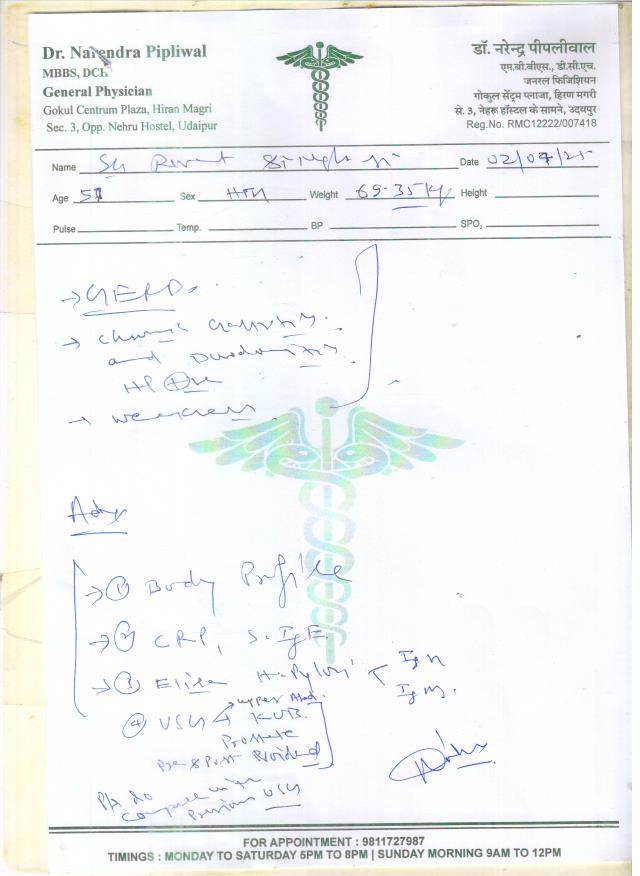 Dr. Narendra Pipliwal
MBBS, DCH
General Physician
Gokul Centrum Plaza, Hiran Magri
Sec. 3, Opp. Nehru Hostel, Udaipur
डॉ. नरेन्द्र पीपलीवाल
एम.बी.बीएस., डी.सी.एच.
जनरल फिजिशियन
गोकुल सेंट्रम प्लाजा, हिरण मगरी
से. 3, नेहरू हॉस्टल के सामने, उदयपुर
Reg.No. RMC12222/007418
Name Singh ji Date 02/07/25
Age Sex Weight 69.35 kg Height
Pulse Temp. BP SPO2
→ GERD.
→ Chronic Gastritis.
and Duodenitis
HP +ve
→ weakness
Adv
→ ① Body Profile
→ ② CRP, S. IgE.
→ ③ Elisa H. Pylori IgM.
④ USG → upper Abd.
KUB.
Prostate
Pre & Post Voided
compare with
Previous USG
FOR APPOINTMENT : 9811727987
TIMINGS : MONDAY TO SATURDAY 5PM TO 8PM | SUNDAY MORNING 9AM TO 12PM